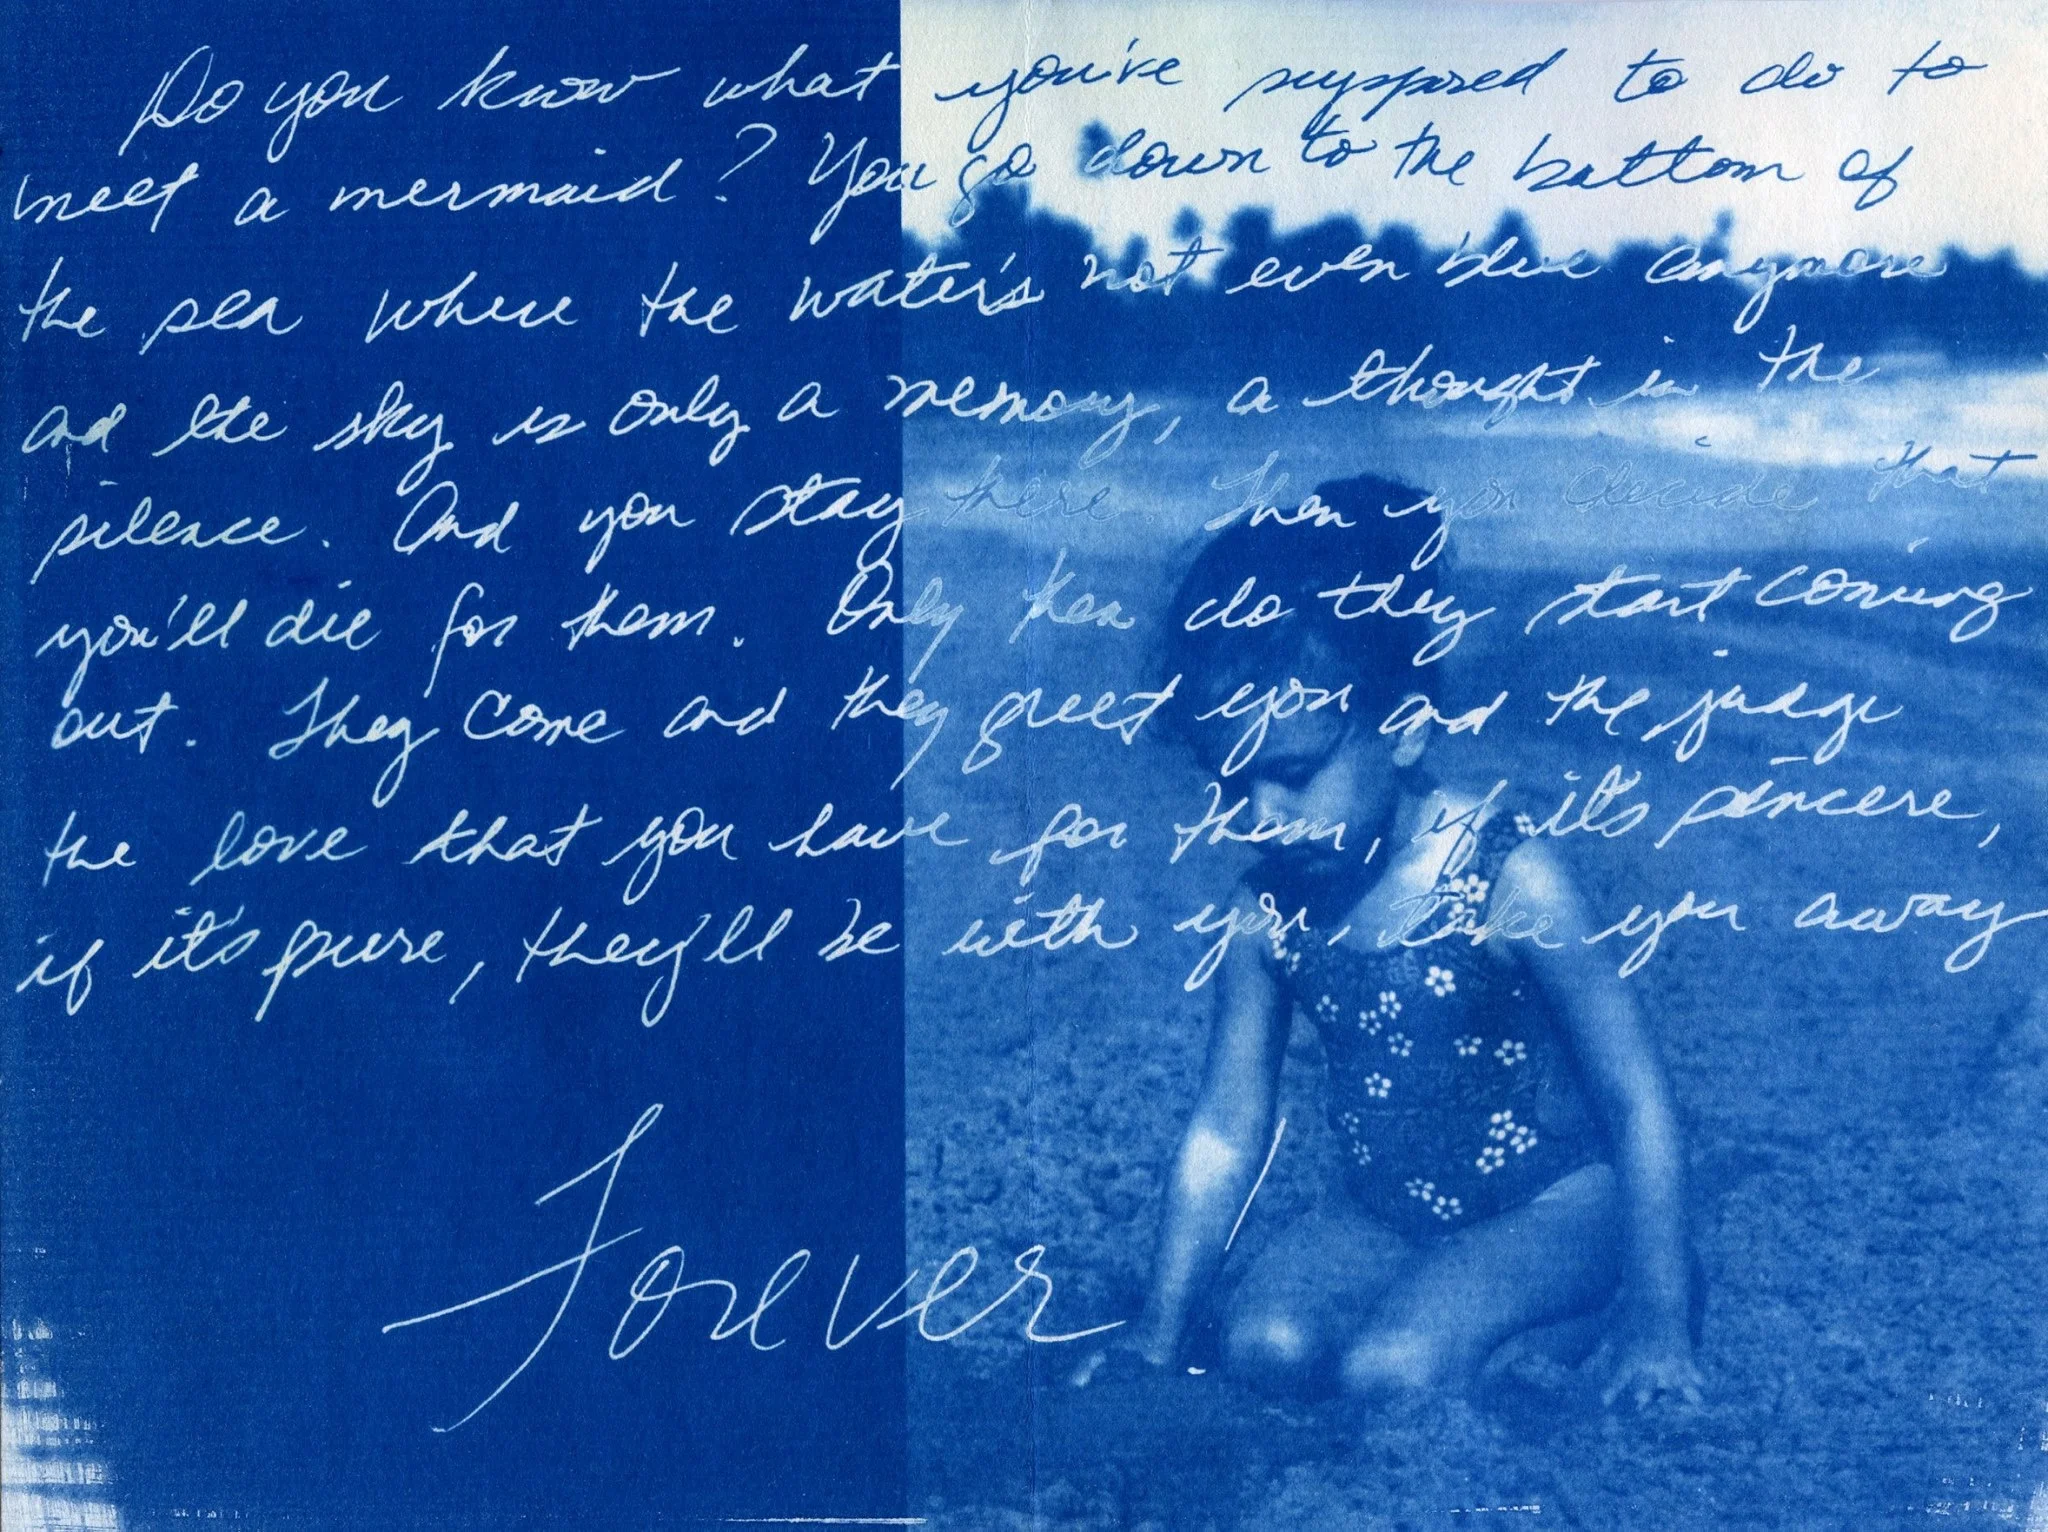 Do you know what you've supposed to do to
meet a mermaid? You go down to the bottom of
the sea where the water's not even blue anymore
and the sky is only a memory, a thought in the
silence. And you stay there Then you decide that
you'll die for them. Only then do they start coming
out. They come and they greet you and the judge
the love that you have for them, if it's sincere,
if it's pure, they'll be with you, take you away
Forever